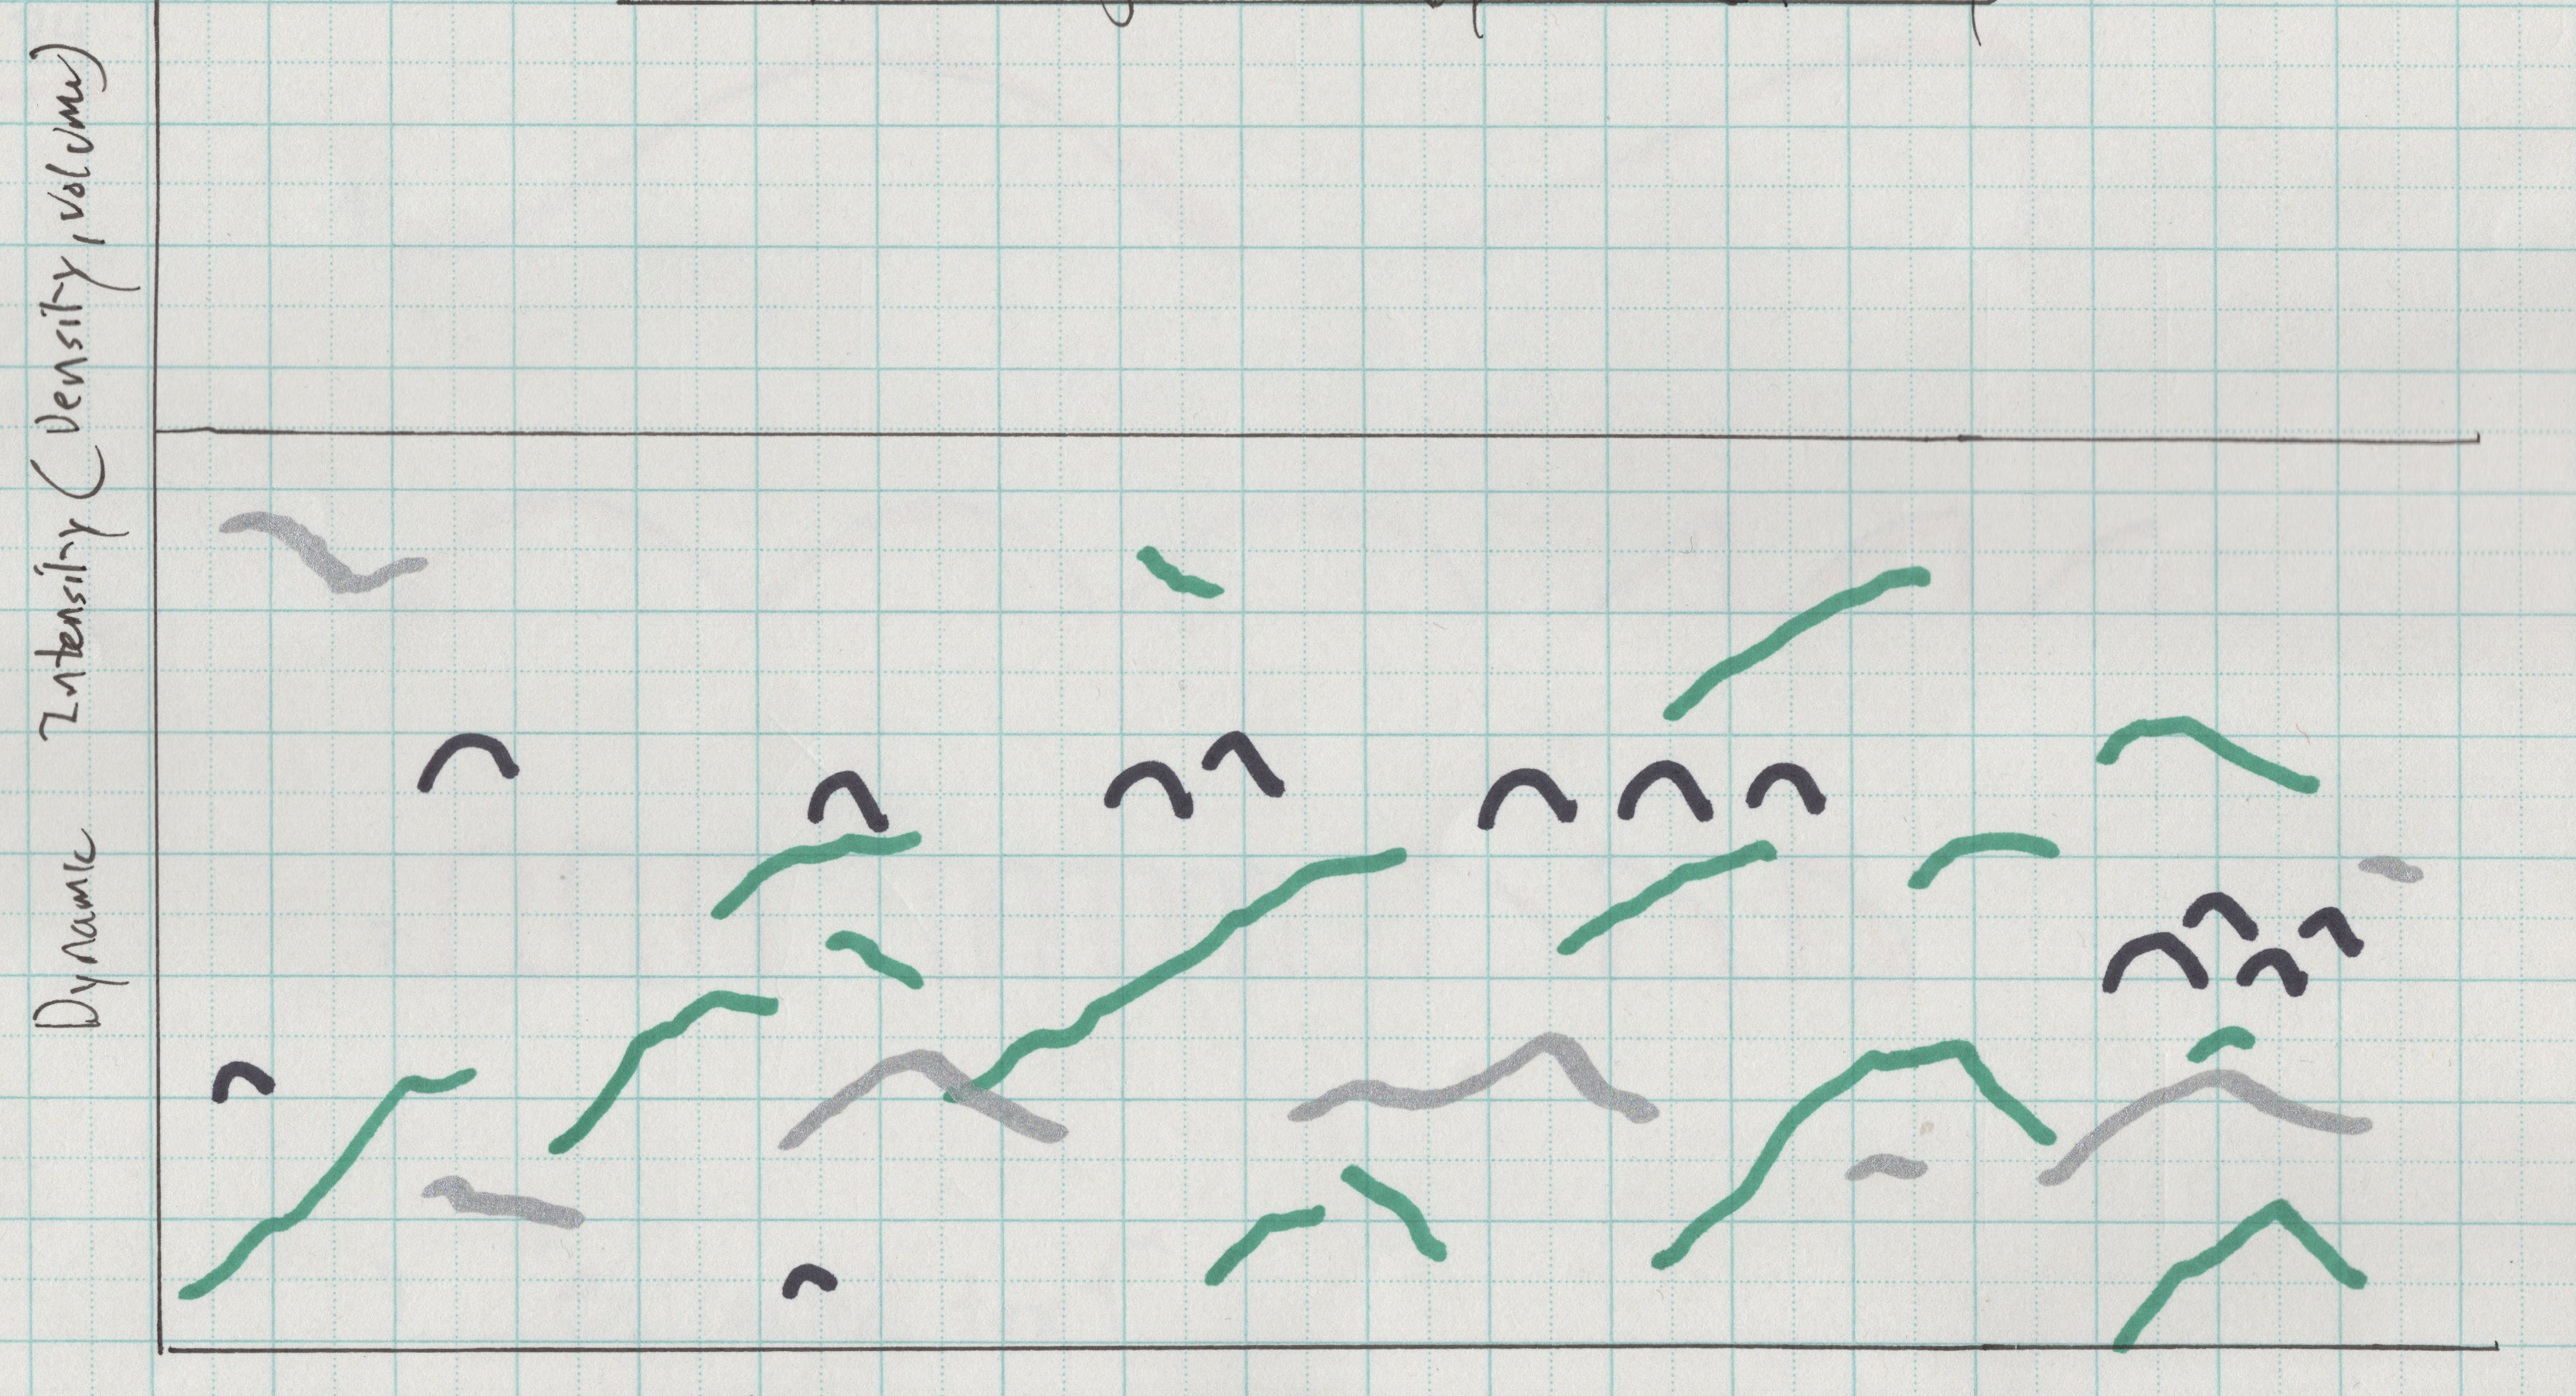 Dynamic Intensity (Density, volume)